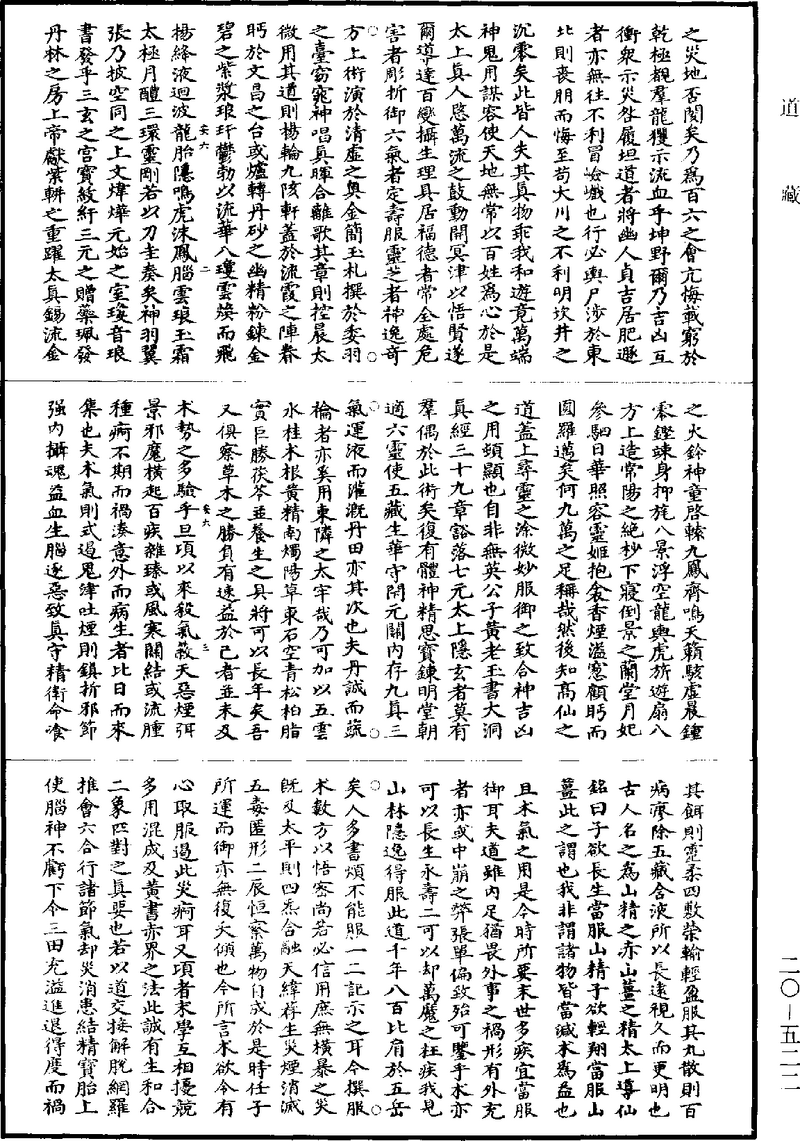 道藏
二〇—五二二
之災地否閡矣乃爲百六之會亢悔載窮於
乾極覩羣龍玃示流血乎坤野爾乃吉凶互
衝衆示災咎履坦道者將幽人貞吉居肥遯
者亦無往不利冒嶮巇也行必輿尸涉於東
北則喪朋而悔至苟大川之不利明坎井之
沉零矣此皆人夫其真物乖我和遊竟萬端
神鬼用謀容使天地無常以百姓爲心於是
太上真人愍萬流之鼓動開冥津以悟賢遂
爾導達百變攝生理具居福德者常全處危
害者彫折御六氣者定壽服靈芝者神逸奇
方上術演於清虛之奧金簡玉札撰於委羽
之臺窈窕神唱真暉合離歌其章則控晨太
微用其道則楊輪九陔軒蓋於流霞之陣眷
眄於文昌之台或爐轉丹砂之幽精粉鍊金
碧之紫漿琅玕鬱勃以流華八瓊雲煥而飛
揚絳液迴波龍胎隱鳴虎沬鳳腦雲琅玉霜
安六
二
太極月醴三環靈剛若以刀圭奏矣神羽翼
張乃披空同之上文煒燁元始之室瓊音琅
書發乎三玄之宮寶紋紆三元之贈藥珮發
丹林之房上帝獻紫軿之重躍太真錫流金
之火鈴神童啓轅九鳳齊鳴天籟駭虛晨鍾
零鏗竦身抑旄八景浮空龍輿虎旂遊扇八
方上造常陽之絕杪下寢倒景之蘭堂月妃
參駟日華照容靈姬抱衾香煙溢窻顧眄而
圓羅邁矣何九萬之足稱哉然後知高仙之
道蓋上尋靈之涂微妙服御之致合神吉凶
之用頓顯也自非無英公子黃老玉書大洞
真經三十九章豁落七元太上隱玄者莫有
羣偶於此術矣復有體神精思寶鍊明堂朝
適六靈使五藏生華守閉元關内存九真三
氣運液而灌溉丹田亦其次也夫丹誠而䟽
禴者亦奚用東隣之太牢哉乃可加以五雲
水桂术根黃精南燭陽草東石空青松柏脂
實巨勝茯苓並養生之具將可以長年矣吾
又俱察草木之勝負有速益於己者並未及
术勢之多驗乎旦頃以來殺氣蔽天惡煙弭
安六
三
景邪魔橫起百疾雜臻或風寒關結或流腫
種痾不期而禍湊意外而病生者比日而來
集也夫术氣則式遏鬼津吐煙則鎮折邪節
强内攝魂益血生腦逐惡致真守精衛命飡
其餌則靈柔四敷榮輸輕盈服其丸散則百
病瘳除五藏含液所以長遠視久而更明也
古人名之爲山精之赤山薑之精太上導仙
銘曰子欲長生當服山精子欲輕翔當服山
薑此之謂也我非謂諸物皆當減术爲益也
且术氣之用是今時所要末世多疾宜當服
御耳夫道雖内足猶畏外事之禍形有外充
者亦或中崩之弊張單偏致殆可鑒乎术亦
可以長生永壽二可以却萬魔之枉疾我見
山林隱逸得服此道千年八百比肩於五岳
矣人多書煩不能服一二記示之耳今撰服
术數方以悟密尚若必信用庶無橫暴之災
既及太平則四炁合融天緯荐生災煙消滅
五毒匿形二辰恒察萬物自成於是時任子
所運而御亦無復夭傾也今所言术欲令有
心取服遏此災痾耳又頃者末學互相擾競
多用混成及黃書赤界之法此誠有生和合
二象匹對之真要也若以道交接解脫網羅
推會六合行諸節氣却災消患結精寶胎上
使腦神不虧下令三田充溢進退得度而禍